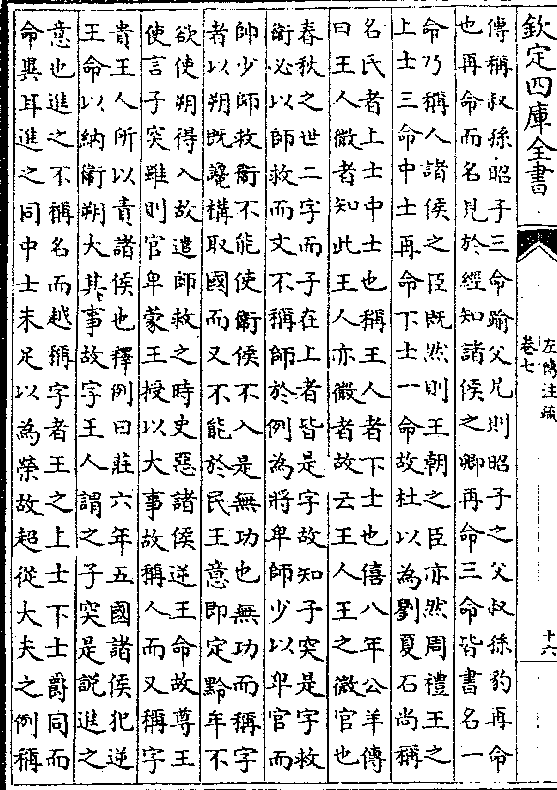 欽定四庫全書
左傳注疏
卷七
十六
傳稱叔孫昭子三命踰父兄則昭子之父叔孫豹再命
也再命而名見於經知諸侯之卿再命三命皆書名一
命乃稱人諸侯之臣既然則王朝之臣亦然周禮王之
上士三命中士再命下士一命故杜以為劉夏石尚稱
名氏者上士中士也稱王人者下士也僖八年公羊傳
曰王人微者知此王人亦微者故云王人王之微官也
春秋之世二字而子在上者皆是字故知子突是字救
衛必以師救而文不稱師於例為將卑師少以卑官而
帥少師救衛不能使衛侯不入是無功也無功而稱字
者以朔既讒構取國而又不能於民王意即定黔牟不
欲使朔得入故遣師救之時史惡諸侯逆王命故尊王
使言子突雖則官卑蒙王授以大事故稱人而又稱字
貴王人所以責諸侯也釋例曰莊六年五國諸侯犯逆
王命以納衛朔大其事故字王人謂之子突是說進之
意也進之不稱名而越稱字者王之上士下士爵同而
命異耳進之同中士未足以為榮故超從大夫之例稱